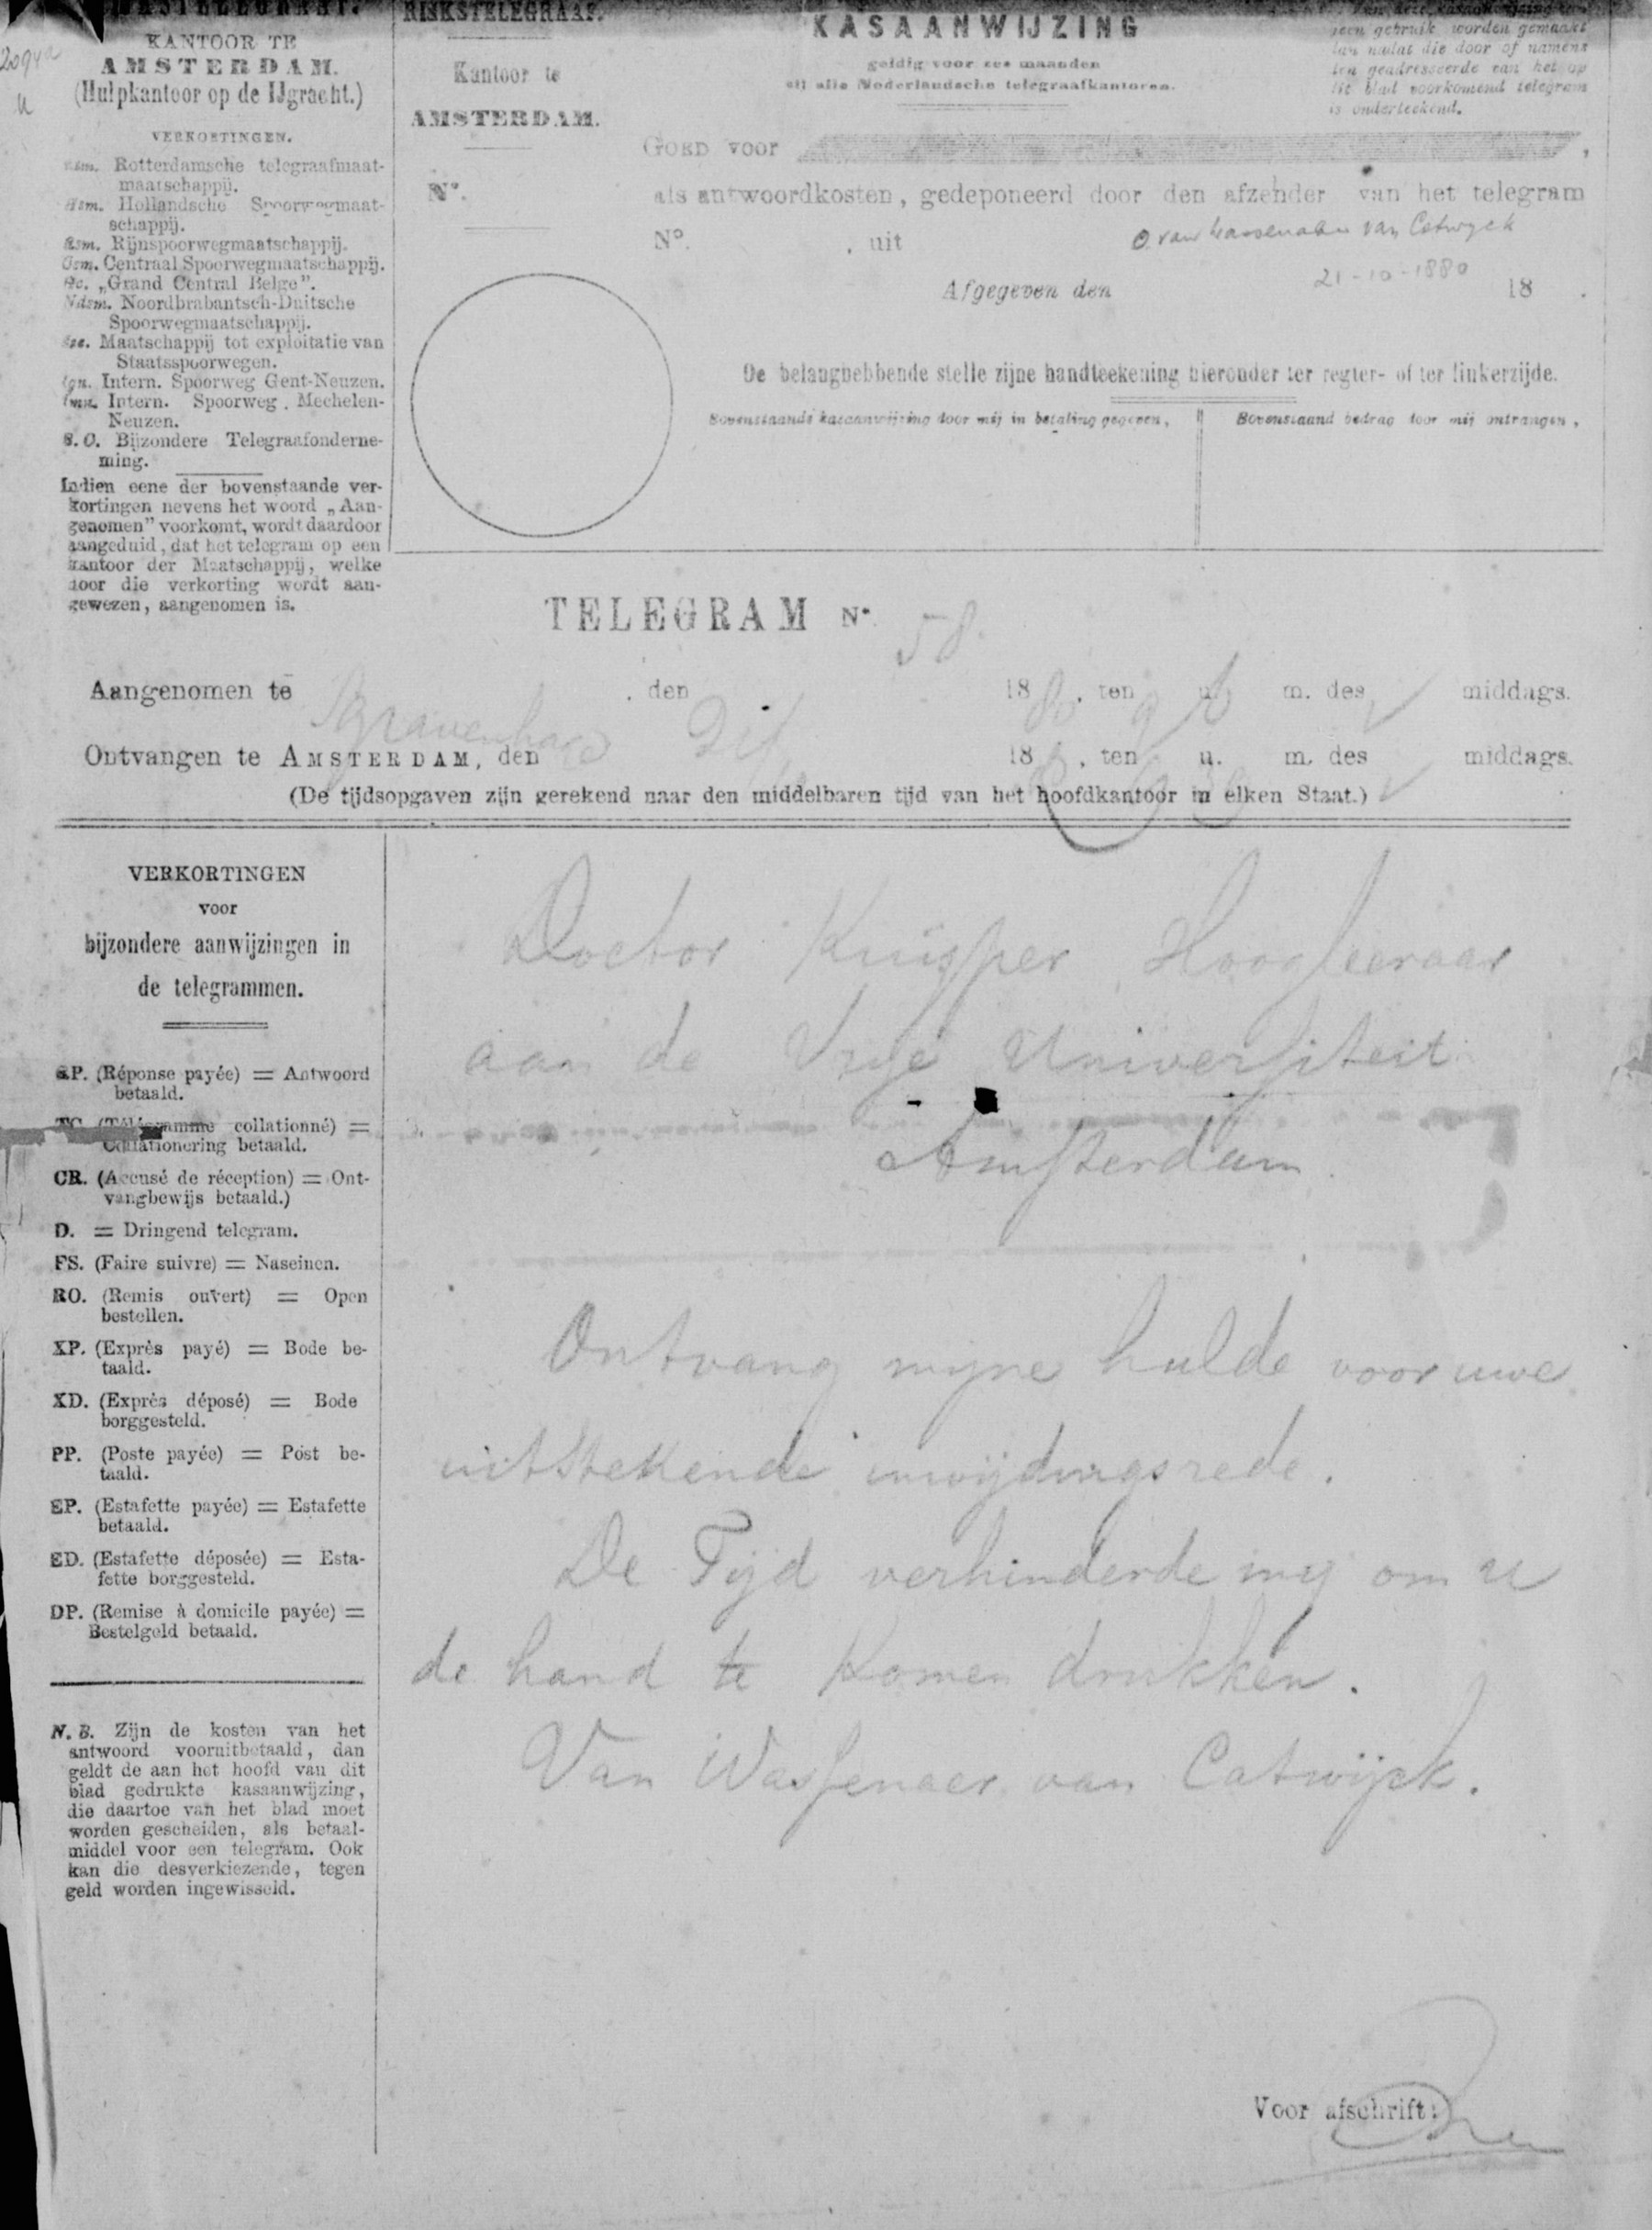 RIJKSTELEGRAAF.
KANTOOR TE
AMSTERDAM.
(Hulpkantoor op de IJgracht.)
VERKORTINGEN.
Rotterdamsche telegraafmaat-
maatschappij.
Hsm. Hollandsche Spoorwegmaat-
schappij.
Rsm. Rijnspoorwegmaatschappij.
Csm. Centraal Spoorwegmaatschappij.
Gc. „Grand Central Belge".
Ndsm. Noordbrabantsch-Duitsche
Spoorwegmaatschappij.
Maatschappij tot exploitatie van
Staatsspoorwegen.
Ign. Intern. Spoorweg Gent-Neuzen.
Imn. Intern. Spoorweg. Mechelen-
Neuzen.
B.O. Bijzondere Telegraafonderne-
ming.
Indien eene der bovenstaande ver-
kortingen nevens het woord „Aan-
genomen" voorkomt, wordt daardoor
aangeduid, dat het telegram op een
kantoor der Maatschappij, welke
door die verkorting wordt aan-
gewezen, aangenomen is.
RIJKSTELEGRAAF.
Kantoor te
AMSTERDAM.
N°.
KASAANWIJZING
geldig voor zes maanden
bij alle Nederlandsche telegraafkantoren.
Van deze kasaanwijzing kan
geen gebruik worden gemaakt
dan nadat die door of namens
den geadresseerde van het op
dit blad voorkomend telegram
is onderteekend.
GOED VOOR
als antwoordkosten, gedeponeerd door den afzender van het telegram
N°. , uit
O. van Wassenaer van Catwyck
21-10-1880
Afgegeven den 18 .
De belanghebbende stelle zijne handteekening hieronder ter regter- of ter linkerzijde.
Bovenstaande kasaanwijzing door mij in betaling gegeven,
Bovenstaand bedrag door mij ontvangen,
TELEGRAM N°. 58
Aangenomen te Sgravenhage . den 21/10 18 80, ten 9 u. m. des v middags.
Ontvangen te AMSTERDAM, den 18 , ten u. m. des v middags.
(De tijdsopgaven zijn gerekend naar den middelbaren tijd van het hoofdkantoor in elken Staat.)
VERKORTINGEN
voor
bijzondere aanwijzingen in
de telegrammen.
RP. (Réponse payée) = Antwoord
betaald.
TC. (Télégramme collationné) =
Collationering betaald.
CR. (Accusé de réception) = Ont-
vangbewijs betaald.)
D. = Dringend telegram.
FS. (Faire suivre) = Naseinen.
RO. (Remis ouvert) = Open
bestellen.
XP. (Exprès payé) = Bode be-
taald.
XD. (Exprès déposé) = Bode
borggesteld.
PP. (Poste payée) = Post be-
taald.
EP. (Estafette payée) = Estafette
betaald.
ED. (Estafette déposée) = Esta-
fette borggesteld.
DP. (Remise à domicile payée) =
Bestelgeld betaald.
N.B. Zijn de kosten van het
antwoord vooruitbetaald, dan
geldt de aan het hoofd van dit
blad gedrukte kasaanwijzing,
die daartoe van het blad moet
worden gescheiden, als betaal-
middel voor een telegram. Ook
kan die desverkiezende, tegen
geld worden ingewisseld.
Doctor Kuijper Hoogleeraar
aan de Vrije Universiteit
Amsterdam.
Ontvang myne hulde voor uwe
uitstekende inwijdingsrede.
De Tijd verhinderde my om u
de hand te komen drukken.
Van Wassenaer van Catwijck.
Voor afschrift: